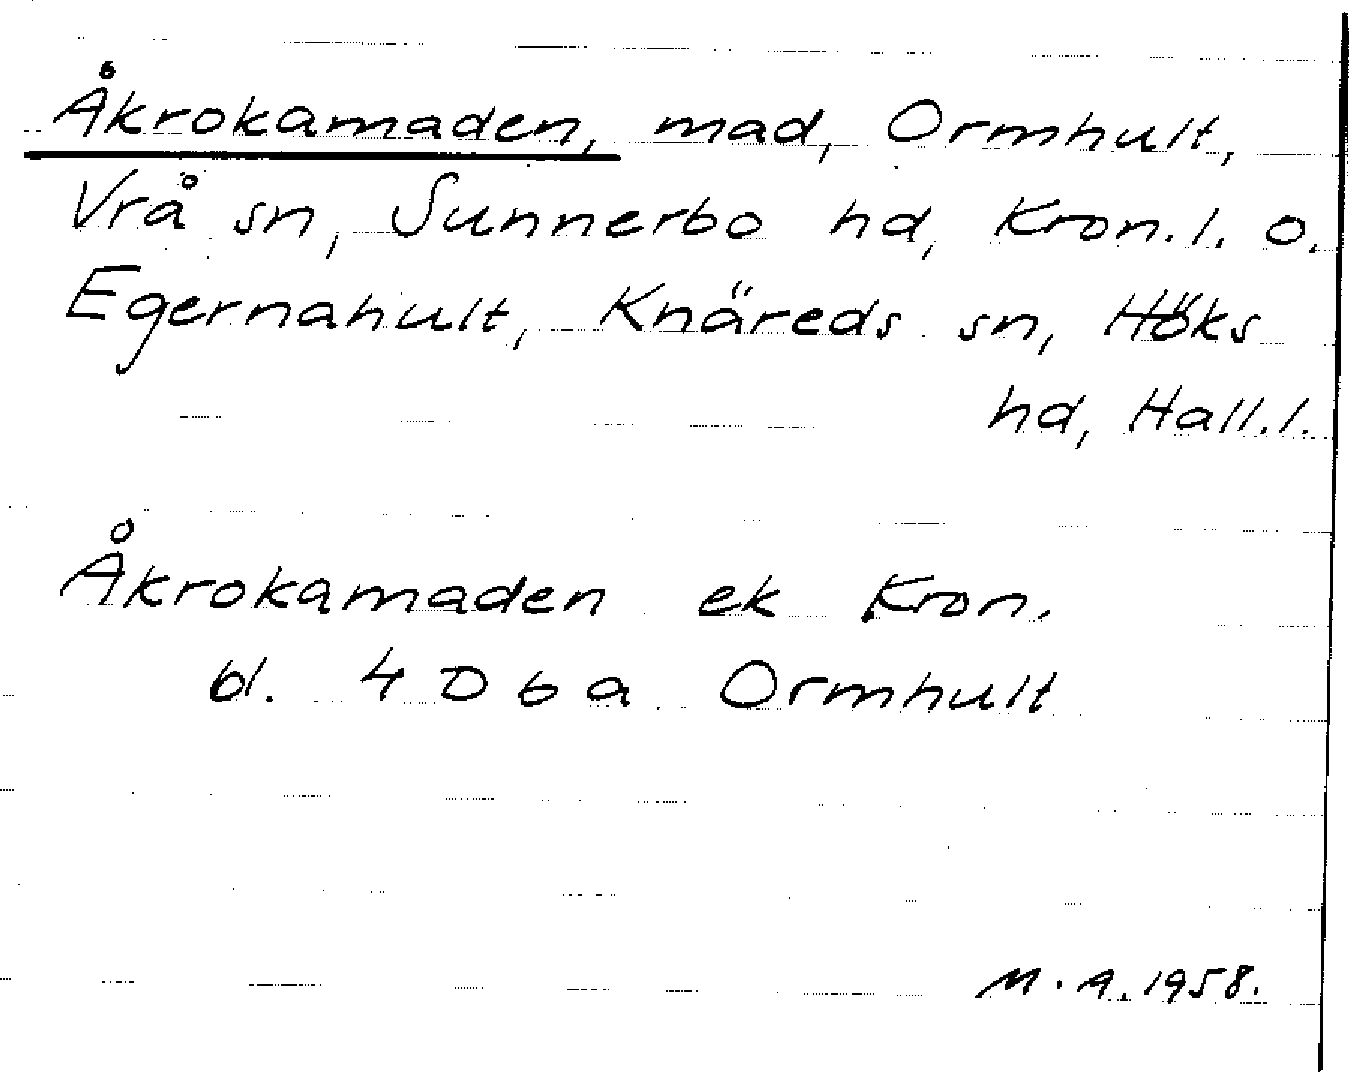 Åkrokamaden, mad, Ormhult,
Vrå sn, Sunnerbo hd, Kron.l. o.
Egernahult, Knäreds sn, Höks
hd, Hall.l.
Åkrokamaden ek Kron.
bl. 4 D 6 a Ormhult
M.A. 1958.